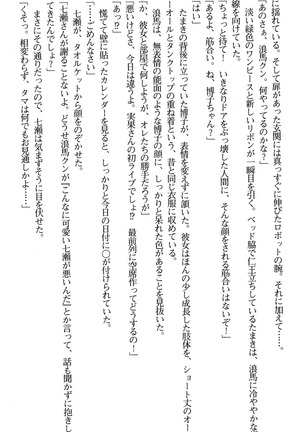 に揺れている。そして扉があった玄関には真っすぐに伸びたロボットの腕。それに加えて……。
「あのさぁ。浪馬クン、何やってるのかな？」
淡い緑色のワンピースと新しいリボンが一瞬目を引く。ベッド脇で仁王立ちしているたまきは、浪馬に冷ややかな
線を向けていた。
「ちょっと待て！　いきなりドアをぶっ壊した人間に、そんな顔をされる筋合いはないぞ！」
「あるよ、筋合い。ね、博子ちゃん」
たまきの背後に立っていた博子が、表情を変えずに頷いた。彼女はほんの少し成長した肢体を、ショート丈のオー
オールとタンクトップの重ね着という、昔と同じ衣服に収めている。
浪馬は、無表情の能面のような博子の顔に、しっかりと呆れた色があることを見抜いた。
「か、彼女と部屋で何しようが、オレたちの勝手だろうが」
「悪いけどさ、今日は違うよ。実果さんの初ライブでしょ!?　最前列に空席作ってどうするの！」
「あっ？」
慌てて壁に貼ったカレンダーを見ると、しっかりと今日の日付に〇が付けられていた。
「……ごめんなさい」
七瀬が、タオルケットから顔をのぞかせた。
「七瀬さんが謝ることないよ。どうせ浪馬クンが『こんなに可愛い七瀬が悪いんだ』とか言って、話も聞かずに抱きし
てきたんでしょ」
まさにその通りだったので、七瀬は気まずそうに目を伏せた。
「くそっ。相変わらず、タマは何でもお見通しかよ……」